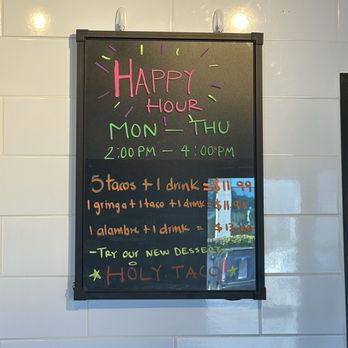 HAPPY
HOUR
MON — THU
2:00 PM - 4:00 PM
5 tacos + 1 drink = $11.99
1 gringa + 1 taco + 1 drink =
1 alambre + 1 drink =
- TRY OUR NEW DESSERT -
HOLY TACO!